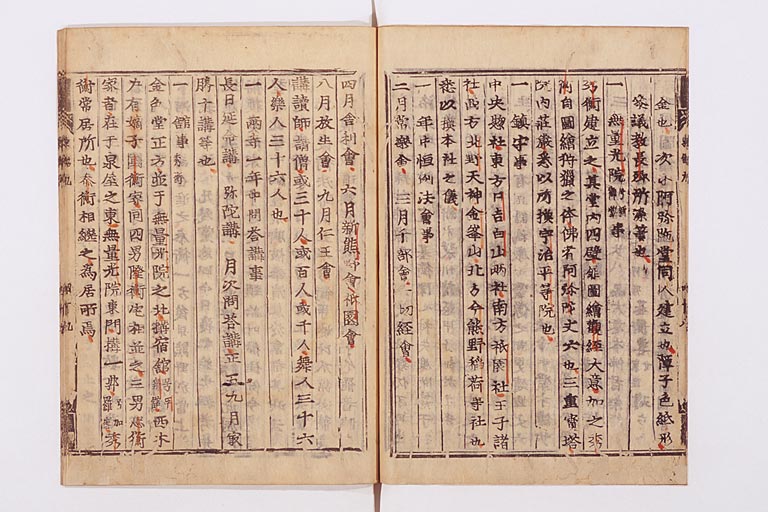 金也 次小阿弥陁堂同人建立也障子色紙形
参議教長卿所染筆也
一 無量光院 号新御堂 事
秀衡建立之其堂内四壁扉圖繪觀經大意加之秀
衡自圖繪狩猟之体佛者阿弥陁丈六也三重寳塔
院内莊嚴悉以所摸宇治平等院也
一 鎮守事
中央惣社東方日吉白山兩社南方祇園社王子諸
社西方北野天神金峯山北方今熊野稲荷等社也
悉以摸本社之儀
一 年中恒例法會事
二月常樂會 三月千部會 一切經會
四月舎利會 六月新熊野會祇園會
八月放生會 九月仁王會
講讀師講僧或三十人或百人或千人舞人三十六
人樂人三十六人也
一 兩寺一年中問荅講事
長日延命講 弥陁講 月次問荅講 正五九月最
勝十講等也
一 舘事 秀衡
金色堂正方並于無量光院之北搆宿舘 号平泉舘 西木
戸有嫡子國衡家同四男隆衡宅相並之三男忠衡
家者在于泉屋之東無量光院東門搆一郭 号加羅御所 秀
衡常居所也泰衡相継之為居所焉